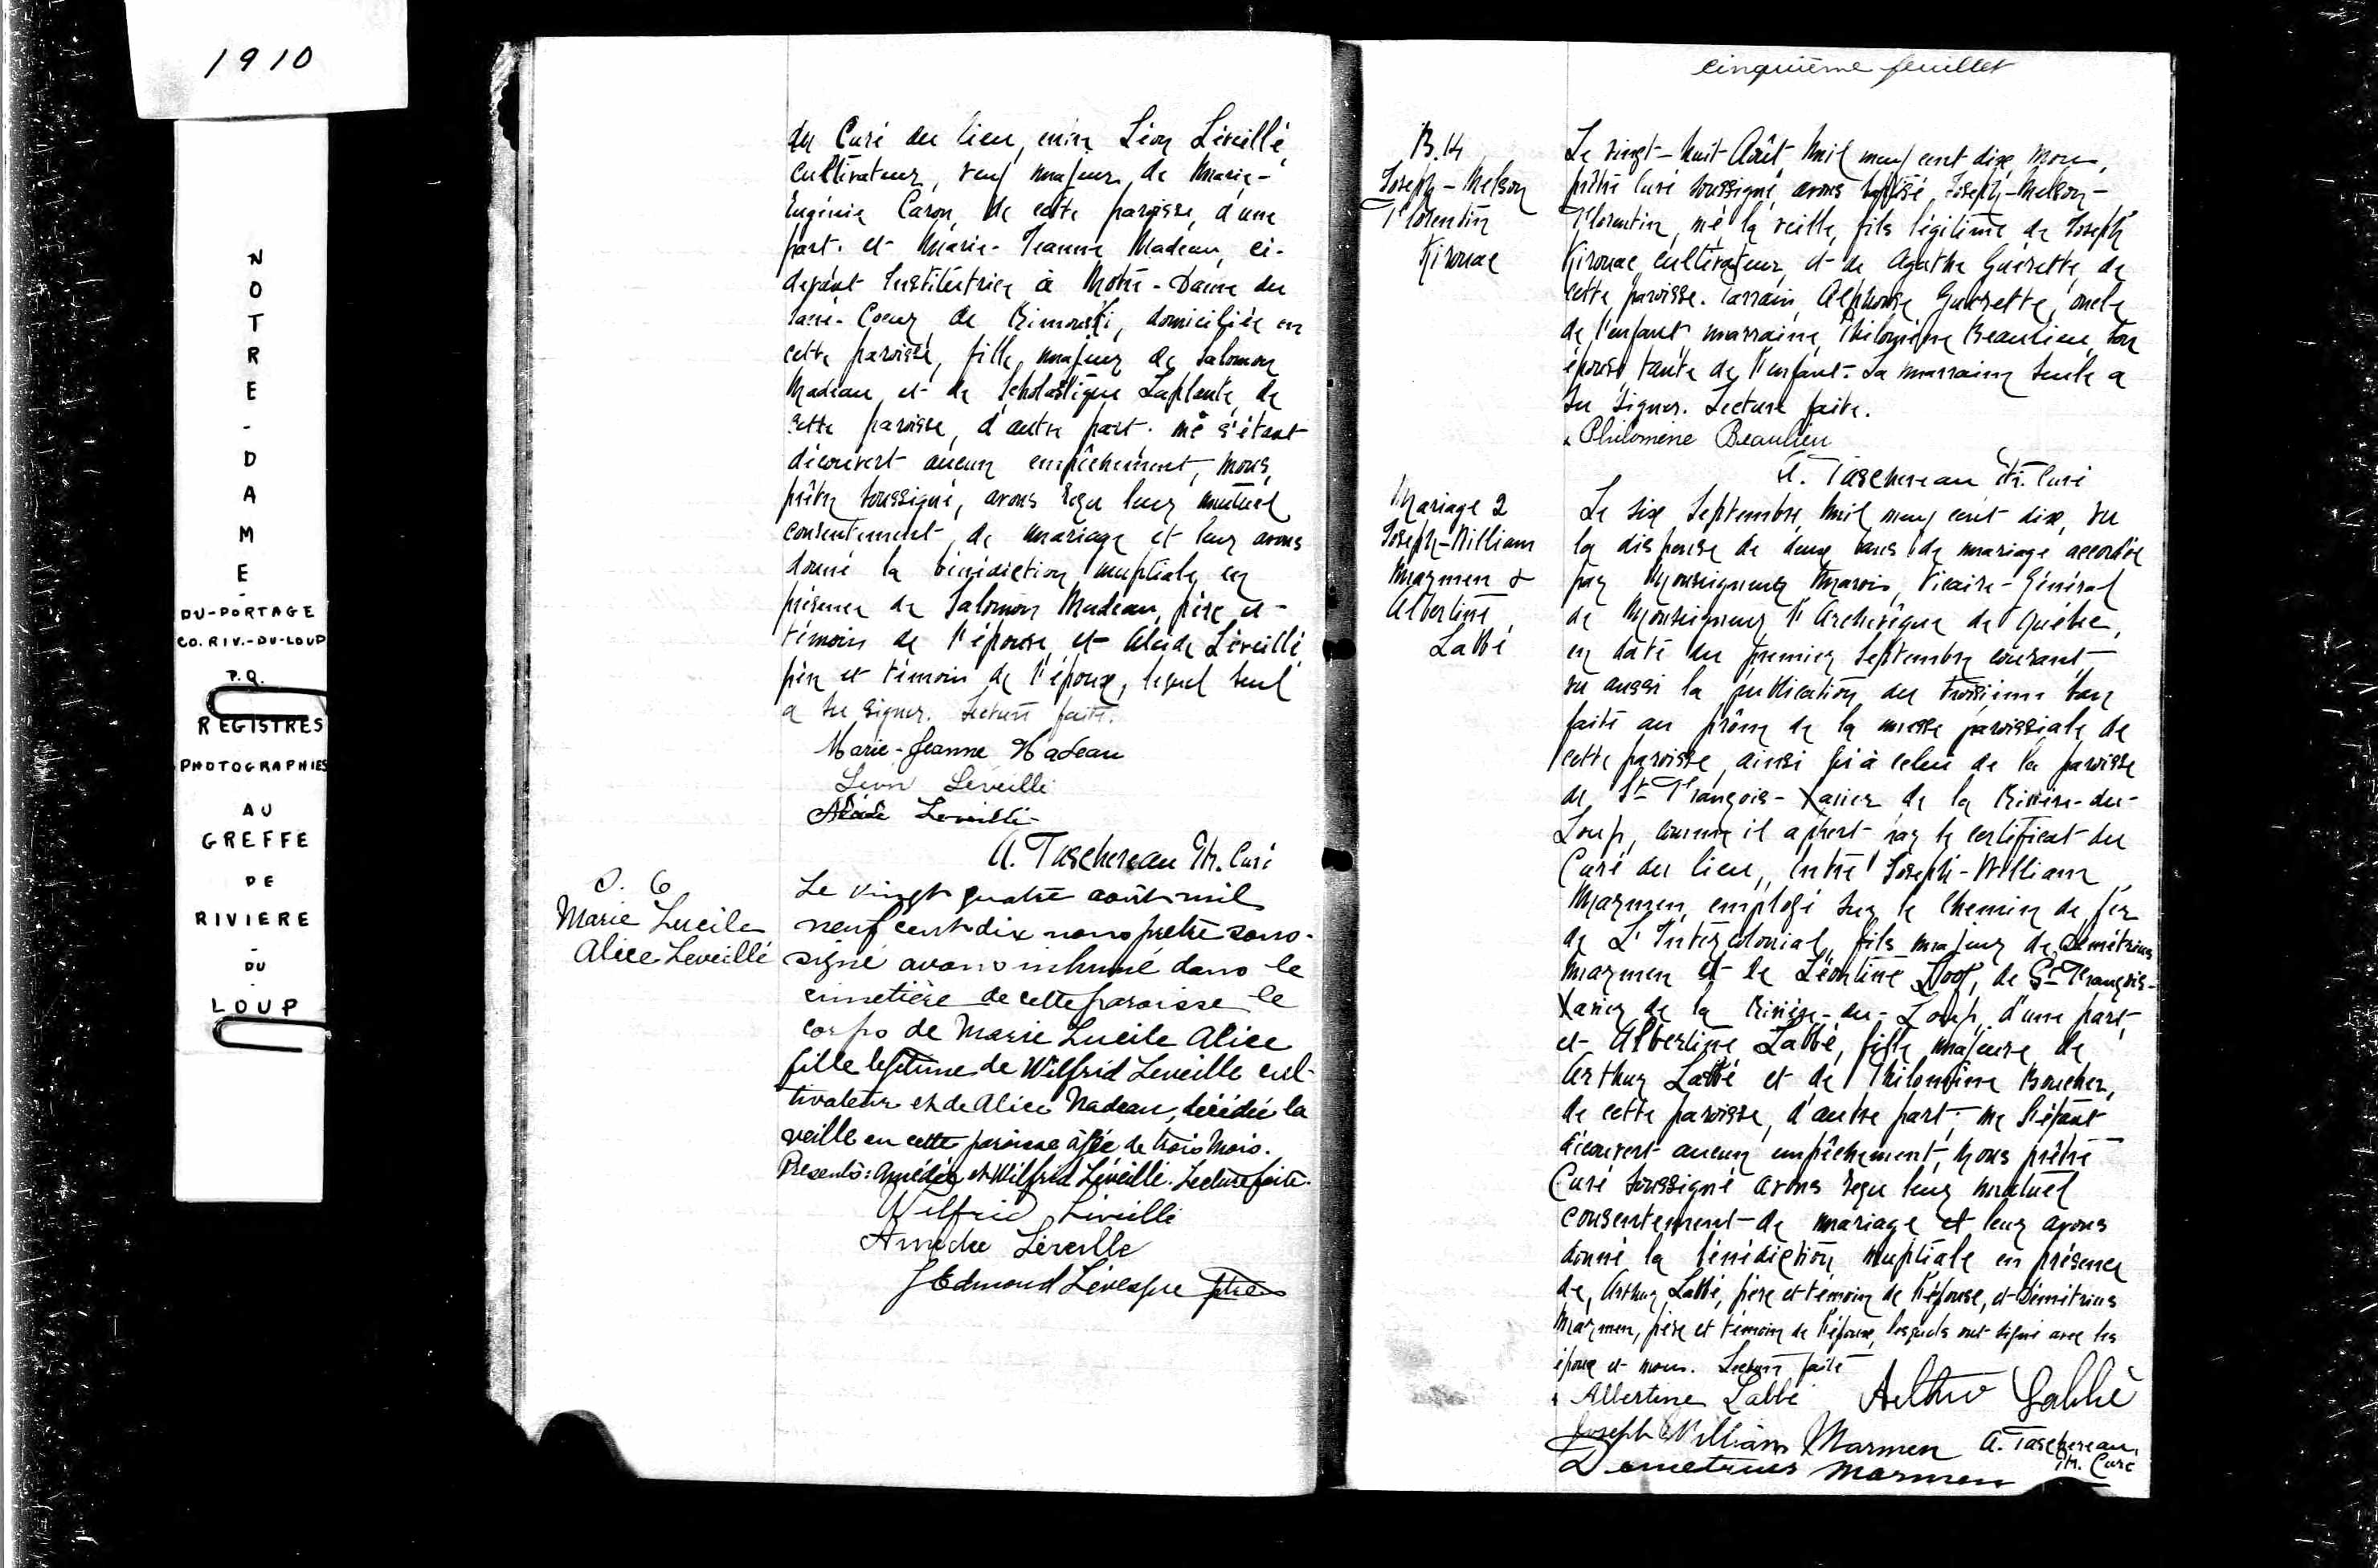 1910
N
O
T
R
E
-
D
A
M
E
-
DU-PORTAGE
CO. RIV.-DU-LOUP
P.Q.
REGISTRES
PHOTOGRAPHIES
AU
GREFFE
DE
RIVIERE
-
DU
-
LOUP
du Curé du lieu, entre Léon Léveillé,
cultivateur, veuf majeur de Marie-
Eugénie Caron, de cette paroisse, d'une
part. et Marie-Jeanne Nadeau, ci-
devant Institutrice à Notre-Dame du
Sacré-Coeur de Rimouski, domiciliée en
cette paroisse, fille majeure de Salomon
Nadeau et de Scholastique Laplante de
cette paroisse, d'autre part. ne s'étant
découvert aucun empêchement, nous,
prêtre soussigné, avons reçu leur mutuel
consentement de mariage et leur avons
donné la bénédiction nuptiale en
présence de Salomon Nadeau, père et
témoin de l'épouse, et Alcide Léveillé
père et témoin de l'époux, lequel seul
a su signer. Lecture faite.
Marie-Jeanne Nadeau
Léon Léveillé
Alcide Léveillé
A. Taschereau Ptr. Curé
S. 6
Marie Lucile
Alice Leveillé
Le vingt quatre août mil
neuf cent dix nous prêtre sous-
signé avons inhumé dans le
cimetière de cette paroisse le
corps de Marie Lucile Alice
fille legitime de Wilfrid Leveille cul-
tivateur et de Alice Nadeau, décédée la
veille en cette paroisse âgée de trois mois.
Presents: Amédée et Wilfrid Léveillé. Lecture faite.
Wilfrid Léveillé
Amédée Léveille
J Edmond Lévesque ptre
cinquième feuillet
B. 14
Joseph-Nelson
Florentin
Kirouac
Le vingt-huit Août mil neuf cent dix, nous,
prêtre curé soussigné, avons baptisé Joseph-Nelson-
Florentin, né la veille, fils légitime de Joseph
Kirouac, cultivateur, et de Agathe Guérette, de
cette paroisse. Parrain, Alphonse Guérette, oncle
de l'enfant, marraine, Philomène Beaulieu, son
épouse, tante de l'enfant. La marraine seule a
su signer. Lecture faite.
x Philomène Beaulieu
A. Taschereau Ptr. Curé
Mariage 2
Joseph-William
Marmen &
Albertine
Labbé
Le six Septembre, mil neuf cent dix, vu
la dispense de deux bans de mariage accordée
par Monseigneur Marois, Vicaire-Général
de Monseigneur l'Archevêque de Québec,
en date du premier Septembre courant,
vu aussi la publication du troisième ban
faite au prône de la messe paroissiale de
cette paroisse, ainsi qu'à celui de la paroisse
de St-François-Xavier de la Rivière-du-
Loup, comme il appert par le certificat du
Curé du lieu, entre Joseph-William
Marmen, employé sur le Chemin de fer
de L'Intercolonial, fils majeur de Démétrius
Marmen et de Léontine Roof, de St-François-
Xavier de la Rivière-du-Loup, d'une part,
et Albertine Labbé, fille majeure de
Arthur Labbé et de Philomène Boucher,
de cette paroisse, d'autre part; ne s'étant
découvert aucun empêchement, Nous prêtre
Curé soussigné avons reçu leur mutuel
consentement de mariage et leur avons
donné la bénédiction nuptiale en présence
de, Arthur Labbé, père et témoin de l'épouse, et Démétrius
Marmen, père et témoin de l'époux, lesquels ont signé avec les
époux et nous. Lecture faite
x Albertine Labbé Arthur Labbé
Joseph William Marmen A. Taschereau,
Ptr. Curé
Demetrius Marmen